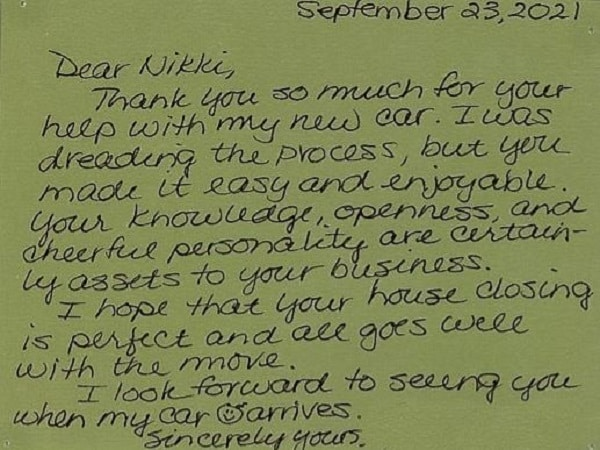 September 23, 2021
Dear Nikki,
Thank you so much for your
help with my new car. I was
dreading the process, but you
made it easy and enjoyable.
Your knowledge, openness, and
cheerful personality are certain-
ly assets to your business.
I hope that your house closing
is perfect and all goes well
with the move.
I look forward to seeing you
when my car ☺ arrives.
Sincerely yours,